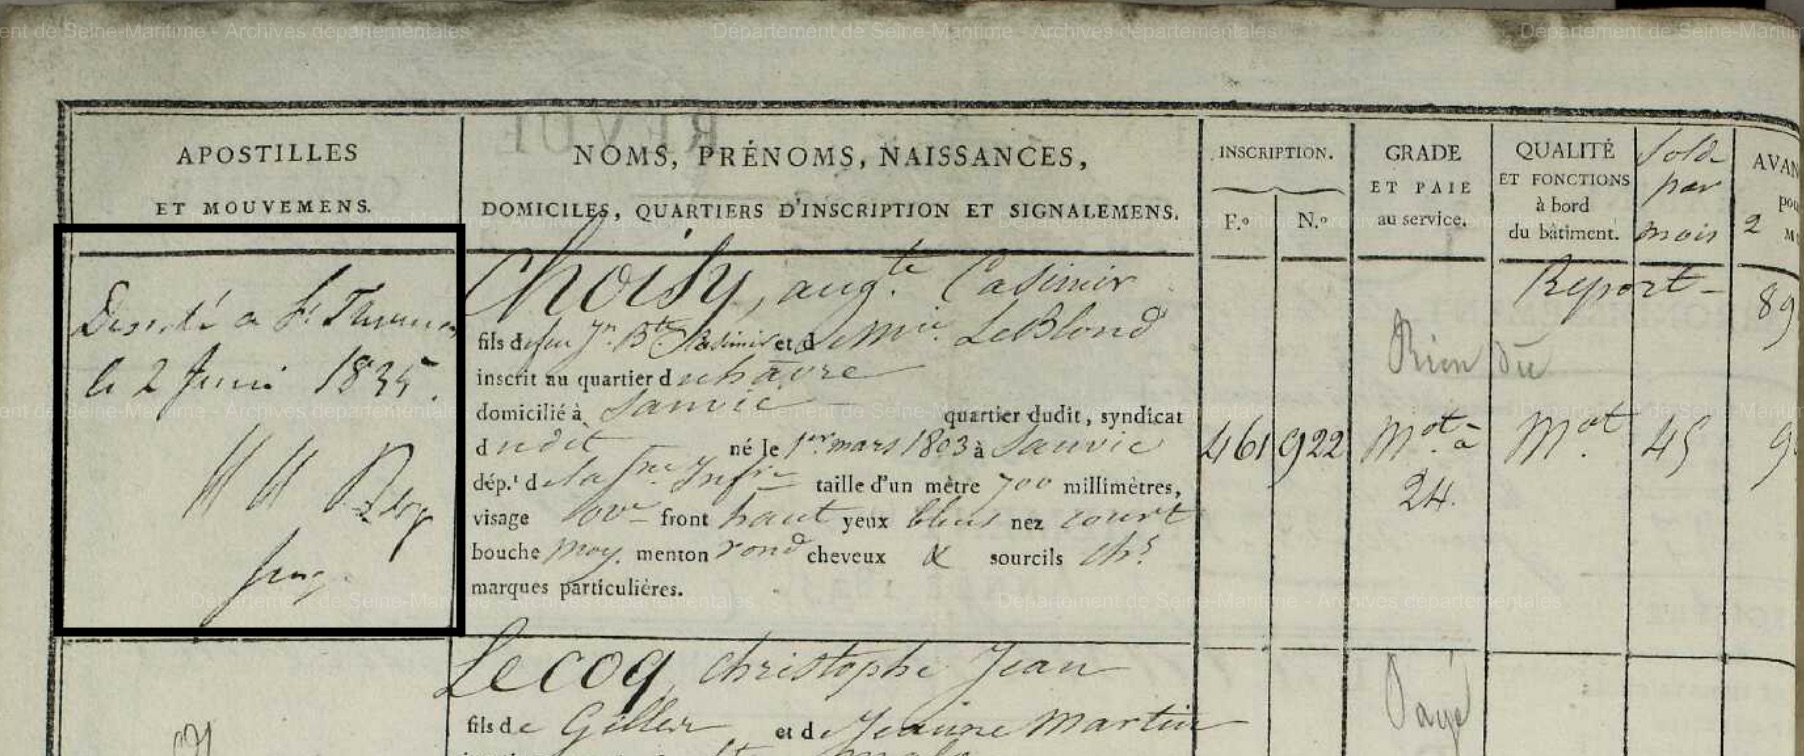 Département de Seine-Maritime - Archives départementales
APOSTILLES
ET MOUVEMENS.
NOMS, PRÉNOMS, NAISSANCES,
DOMICILES, QUARTIERS D'INSCRIPTION ET SIGNALEMENS.
INSCRIPTION.
F.º N.º
GRADE
ET PAIE
au service.
QUALITÉ
ET FONCTIONS
à bord
du bâtiment.
Solde
par
mois
AVAN
pou
2 M
Report
89
Déserté a St
le 2 Juin 1835.
Choisy, augte. Casimir
fils de feu Jn. Bte. Casimir et de Mie. LeBlond
inscrit au quartier du havre
domicilié à Sanvic quartier dudit, syndicat
dudit né le 1er. mars 1803 à Sanvic
dép.t de la Sne. Infre taille d'un mètre 700 millimètres,
visage ov front haut yeux bleus nez court
bouche moy. menton rond cheveux & sourcils chs.
marques particulières.
461 922
Rien dû
Mot. à
24.
Mot.
45
9
Lecoq, christophe Jean
fils de Gilles et de Jeanne Martin
Payé